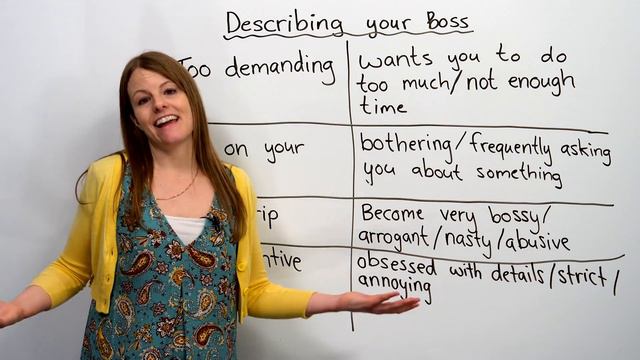 Describing your Boss
Too demanding
wants you to do
too much/not enough
time
on your
bothering/frequently asking
you about something
rip
Become very bossy/
arrogant/nasty/abusive
ntive
obsessed with details/strict/
annoying